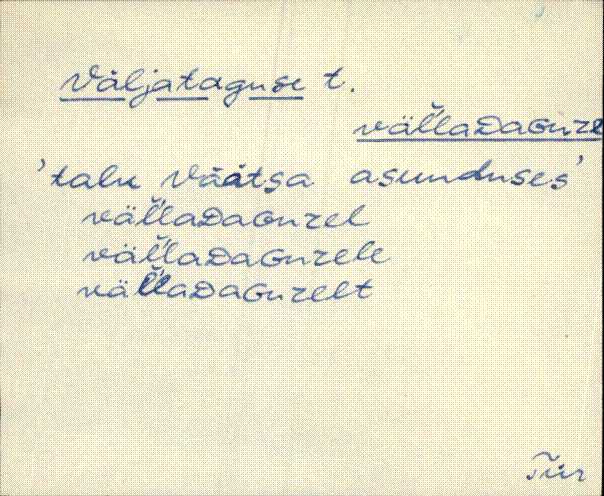 Väljataguse t.
väĺĺaDaGuze
'talu Väätsa asunduses'
väĺĺaDaGuzel
väĺĺaDaGuzele
väĺĺaDaGuzelt
Tür